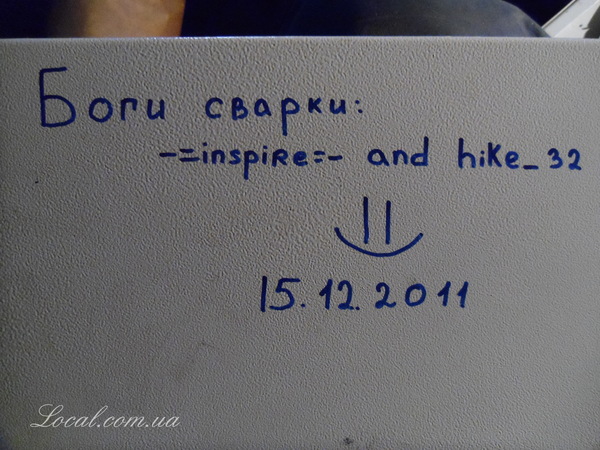 Боги сварки:
-=inspire=- and hike_32
=)
15.12.2011
Local.com.ua